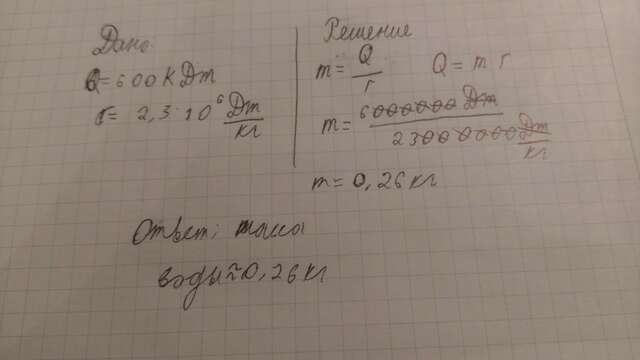 Дано
Q=600кДж
r= 2,3·10⁶ Дж/кг
Решение
m= Q/r Q= m r
m= 6000000 Дж / 23000000 Дж/кг
m= 0,26кг
Ответ: масса
воды≈0,26кг